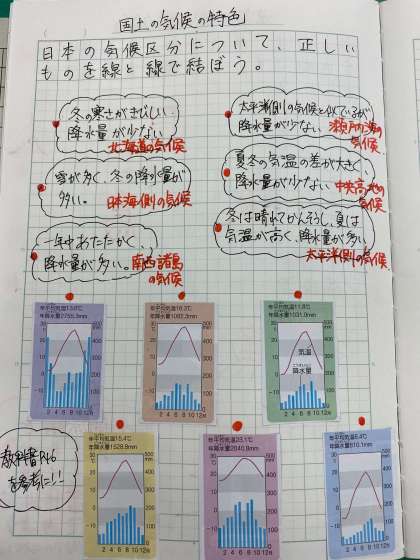 国土の気候の特色
日本の気候区分について、正しい
ものを線と線で結ぼう。
冬の寒さがきびしい
降水量が少ない
北海道の気候
太平洋側の気候と似ているが
降水量が少ない
瀬戸内海の
気候
雪が多く、冬の降水量が
多い。
日本海側の気候
夏冬の気温の差が大きく、
降水量が少ない
中央高地の
気候
一年中あたたかく、
降水量が多い。
南西諸島
の気候
冬は晴れてかんそうし、夏は
気温が高く、降水量が多い
太平洋側の気候
年平均気温13.6℃
年降水量2755.3mm
年平均気温16.3℃
年降水量1082.3mm
年平均気温11.8℃
年降水量1031.0mm
気温
降水量
2 4 6 8 10 12月
2 4 6 8 10 12月
2 4 6 8 10 12月
教科書P.16
を参考に!!
年平均気温15.4℃
年降水量1528.8mm
年平均気温23.1℃
年降水量2040.8mm
年降水量810.1mm
2 4 6 8 10 12月
2 4 6 8 10 12月
2 4 6 8 10 12月